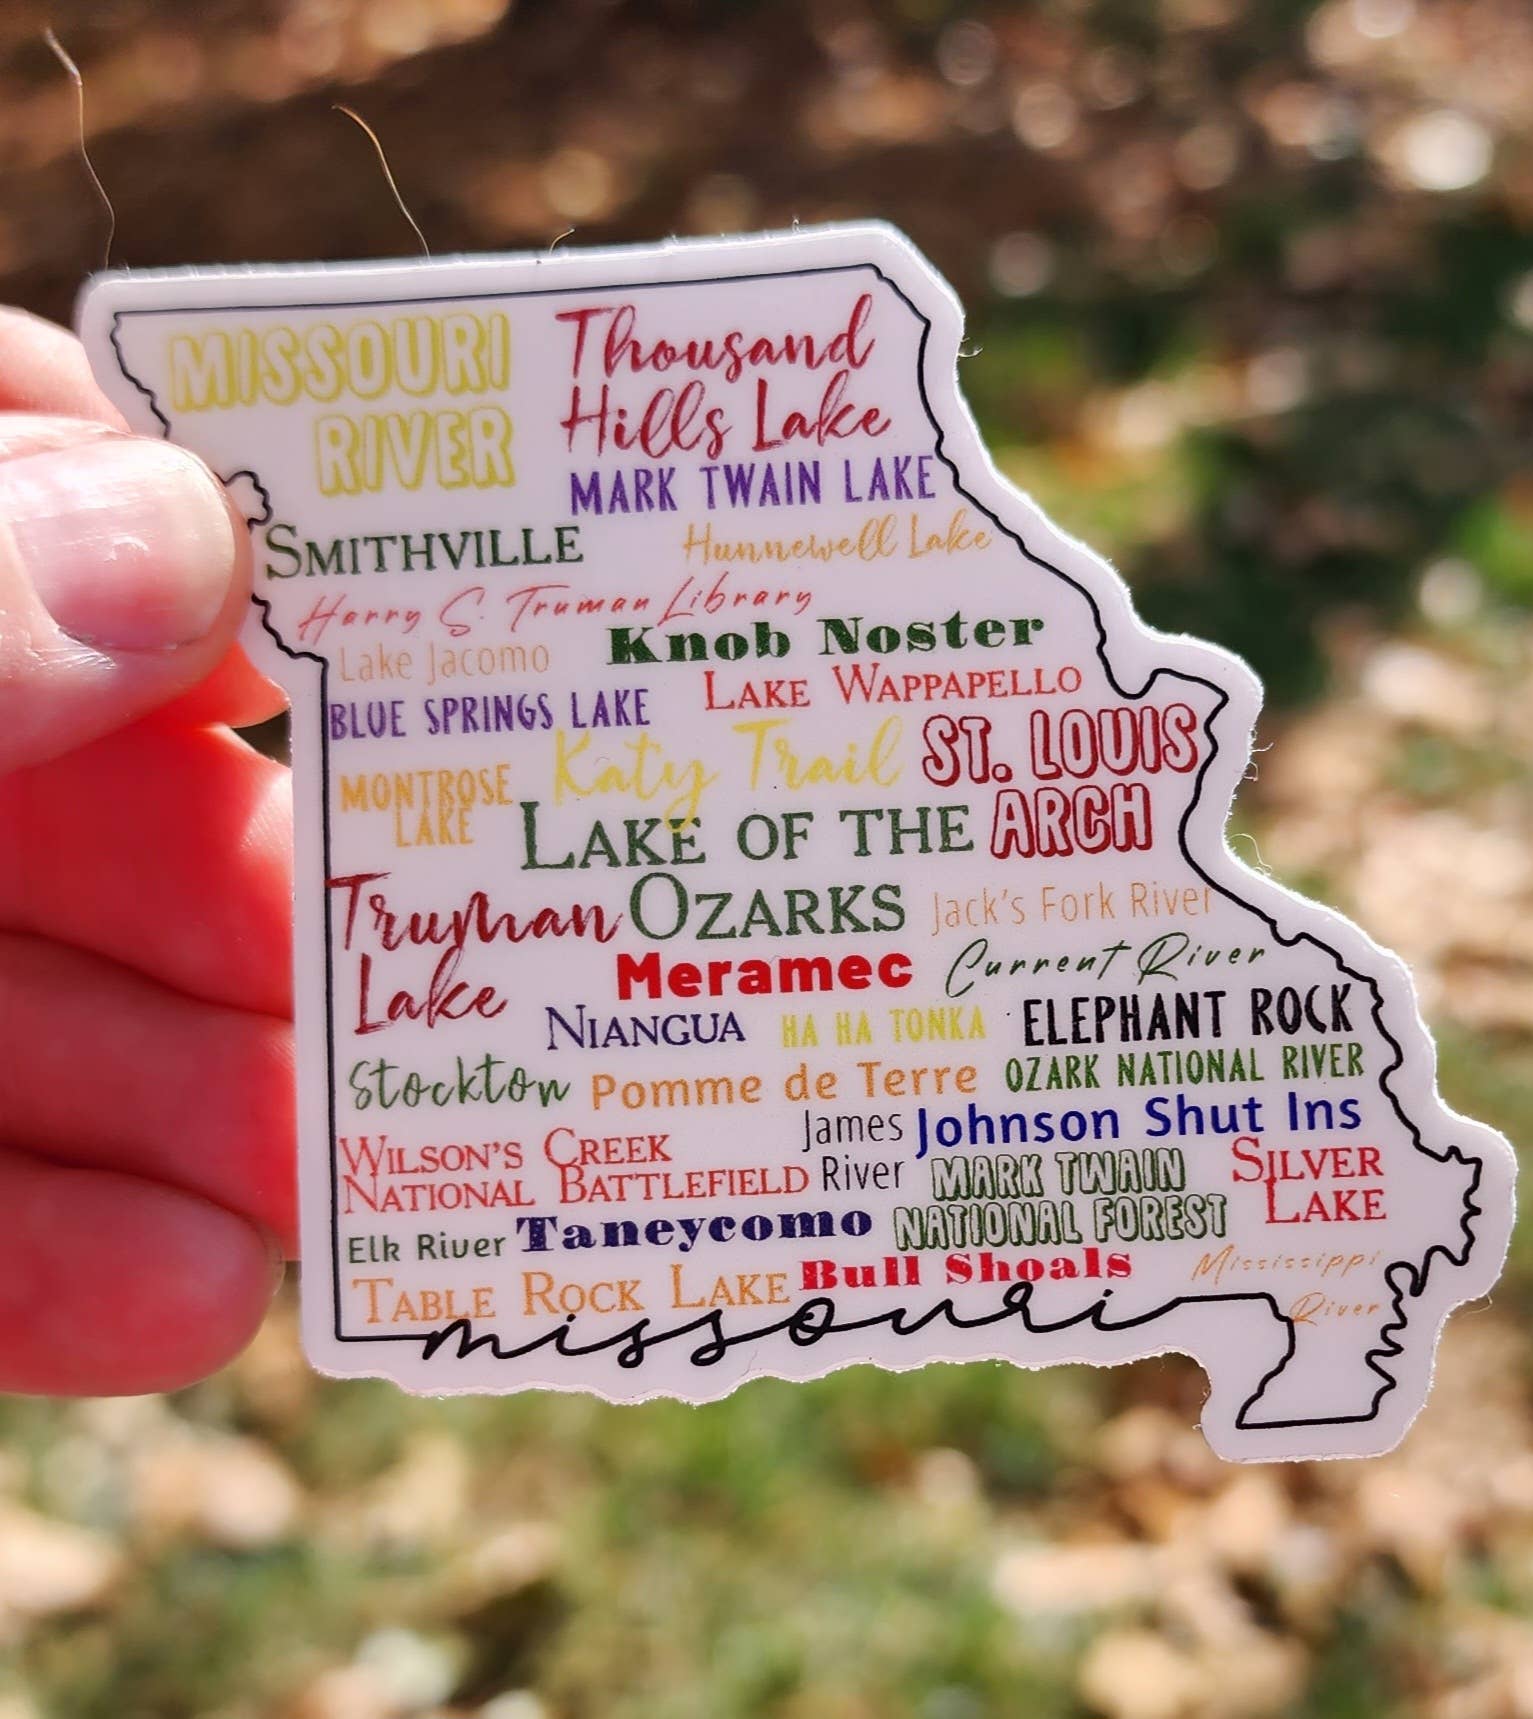 MISSOURI
RIVER
Thousand
Hills Lake
MARK TWAIN LAKE
SMITHVILLE
Hunnewell Lake
Harry S. Truman Library
Lake Jacomo
Knob Noster
BLUE SPRINGS LAKE
LAKE WAPPAPELLO
Katy Trail
ST. LOUIS
ARCH
MONTROSE
LAKE
LAKE OF THE
OZARKS
Truman
Lake
Jack's Fork River
Meramec
Current River
NIANGUA
HA HA TONKA
ELEPHANT ROCK
Stockton
Pomme de Terre
OZARK NATIONAL RIVER
James
River
Johnson Shut Ins
WILSON'S CREEK
NATIONAL BATTLEFIELD
MARK TWAIN
NATIONAL FOREST
SILVER
LAKE
Elk River
Taneycomo
TABLE ROCK LAKE
Bull Shoals
Mississippi
River
missouri